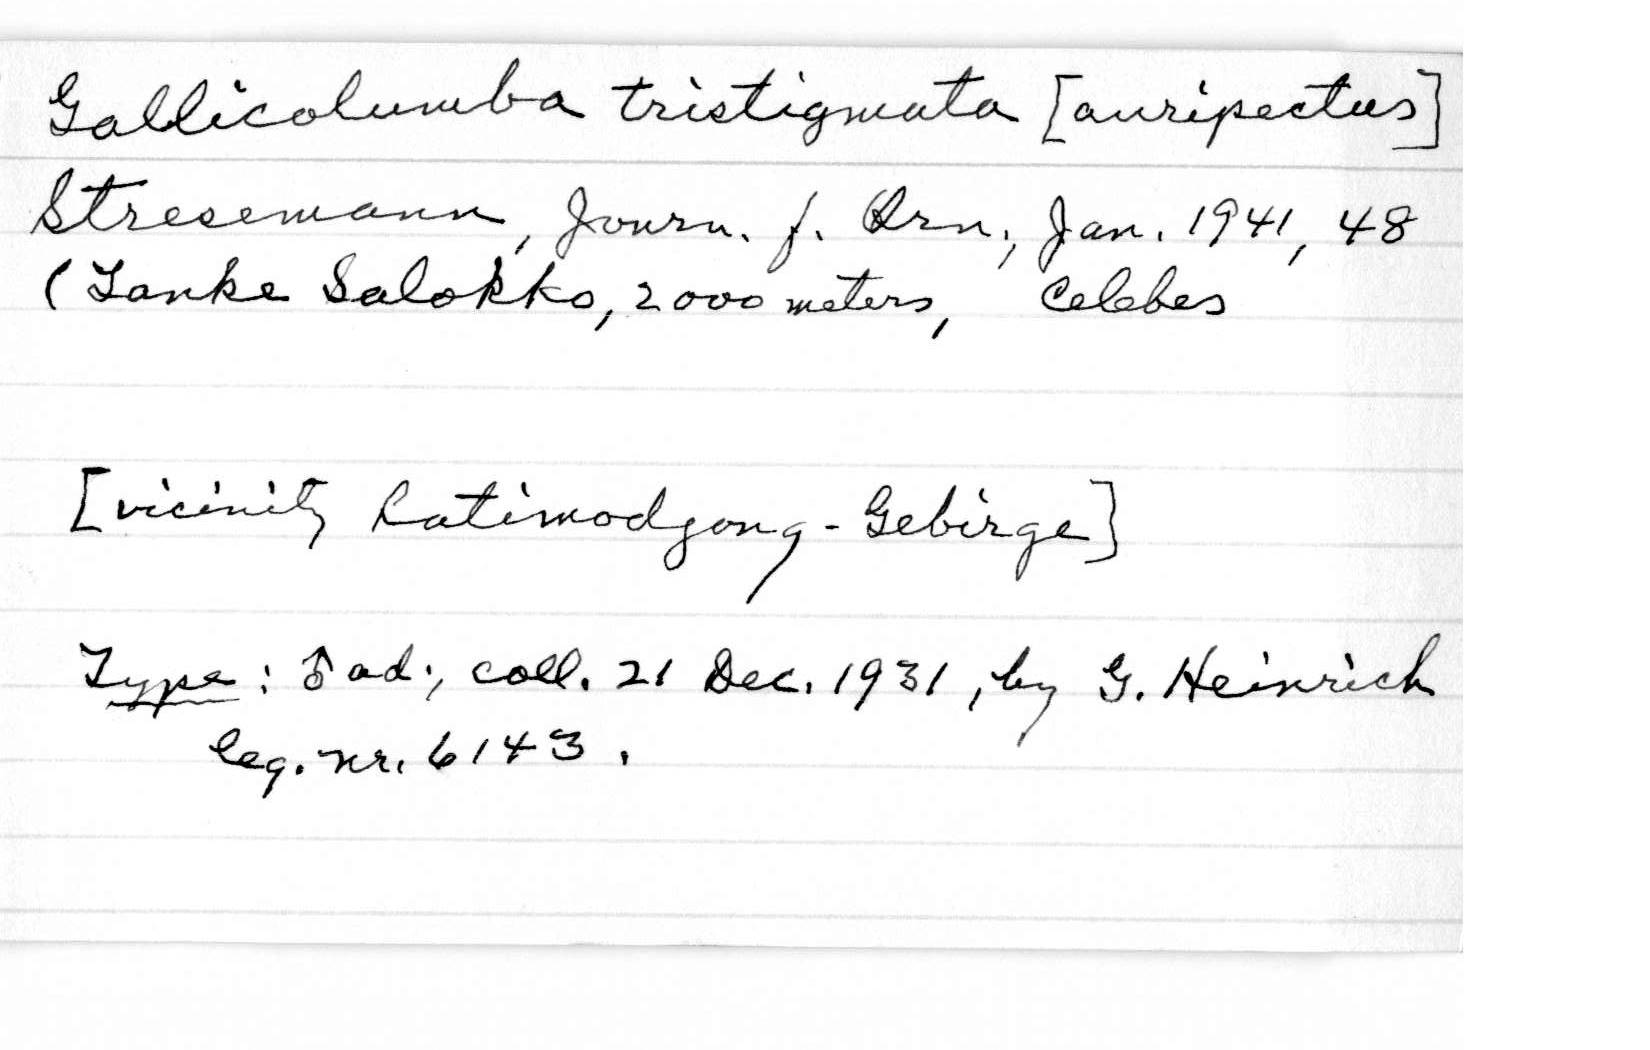 Gallicolumba tristigmata [auripectus]
Stresemann, Journ. f. Orn., Jan. 1941, 48
(Tanke Salokko, 2000 meters, Celebes
[vicinity Latimodjong-Gebirge]
Type: ♂ ad., coll. 21 Dec. 1931, by G. Heinrich
leg. nr. 6143.